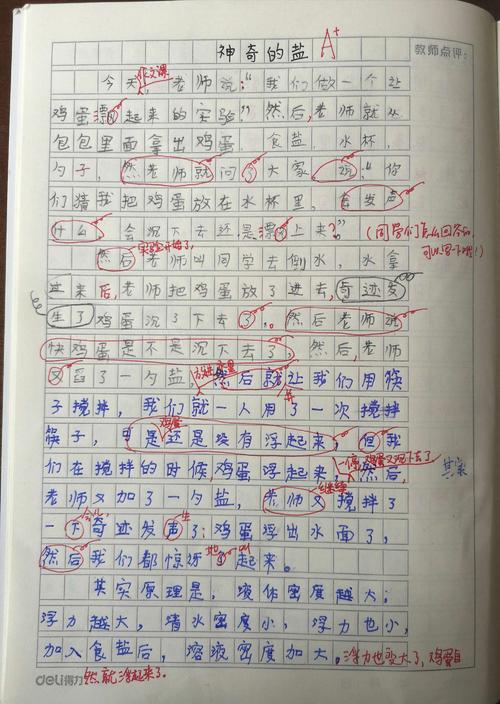 神奇的盐 A+
教师点评:
作文课
今天,老师说:“我们做一个让
鸡蛋漂起来的实验”然后,老师就从
包包里面拿出鸡蛋、食盐、水杯、
勺子,然老师就问了大家说:“你
们猜我把鸡蛋放在水杯里,会发声
什么会沉下去还是漂上来?”
(同学们怎么回答的,
可以写一下哦!)
实验开始了,
然后老师叫同学去倒水,水拿
过来后,老师把鸡蛋放了进去,奇迹发
生了鸡蛋沉了下去了。然后老师说
快鸡蛋是不是沉下去了,然后,老师
又舀了一勺盐,然后就让我们用筷
子搅拌,我们就一人用了一次搅拌
鸡蛋
筷子,可是还是没有浮起来,但我
们在搅拌的时候,鸡蛋浮起来,然后,
一停,鸡蛋又沉下去了
其实
老师又加了一勺盐,老师又搅拌了
继续
会儿
生
一下奇迹发声了:鸡蛋浮出水面了,
然后我们都惊讶地叫起来。
其实原理是,液体密度越大;
浮力越大,清水密度小,浮力也小,
加入食盐后,溶液密度加大。浮力也变大了,鸡蛋自
然就浮起来了.
deli得力